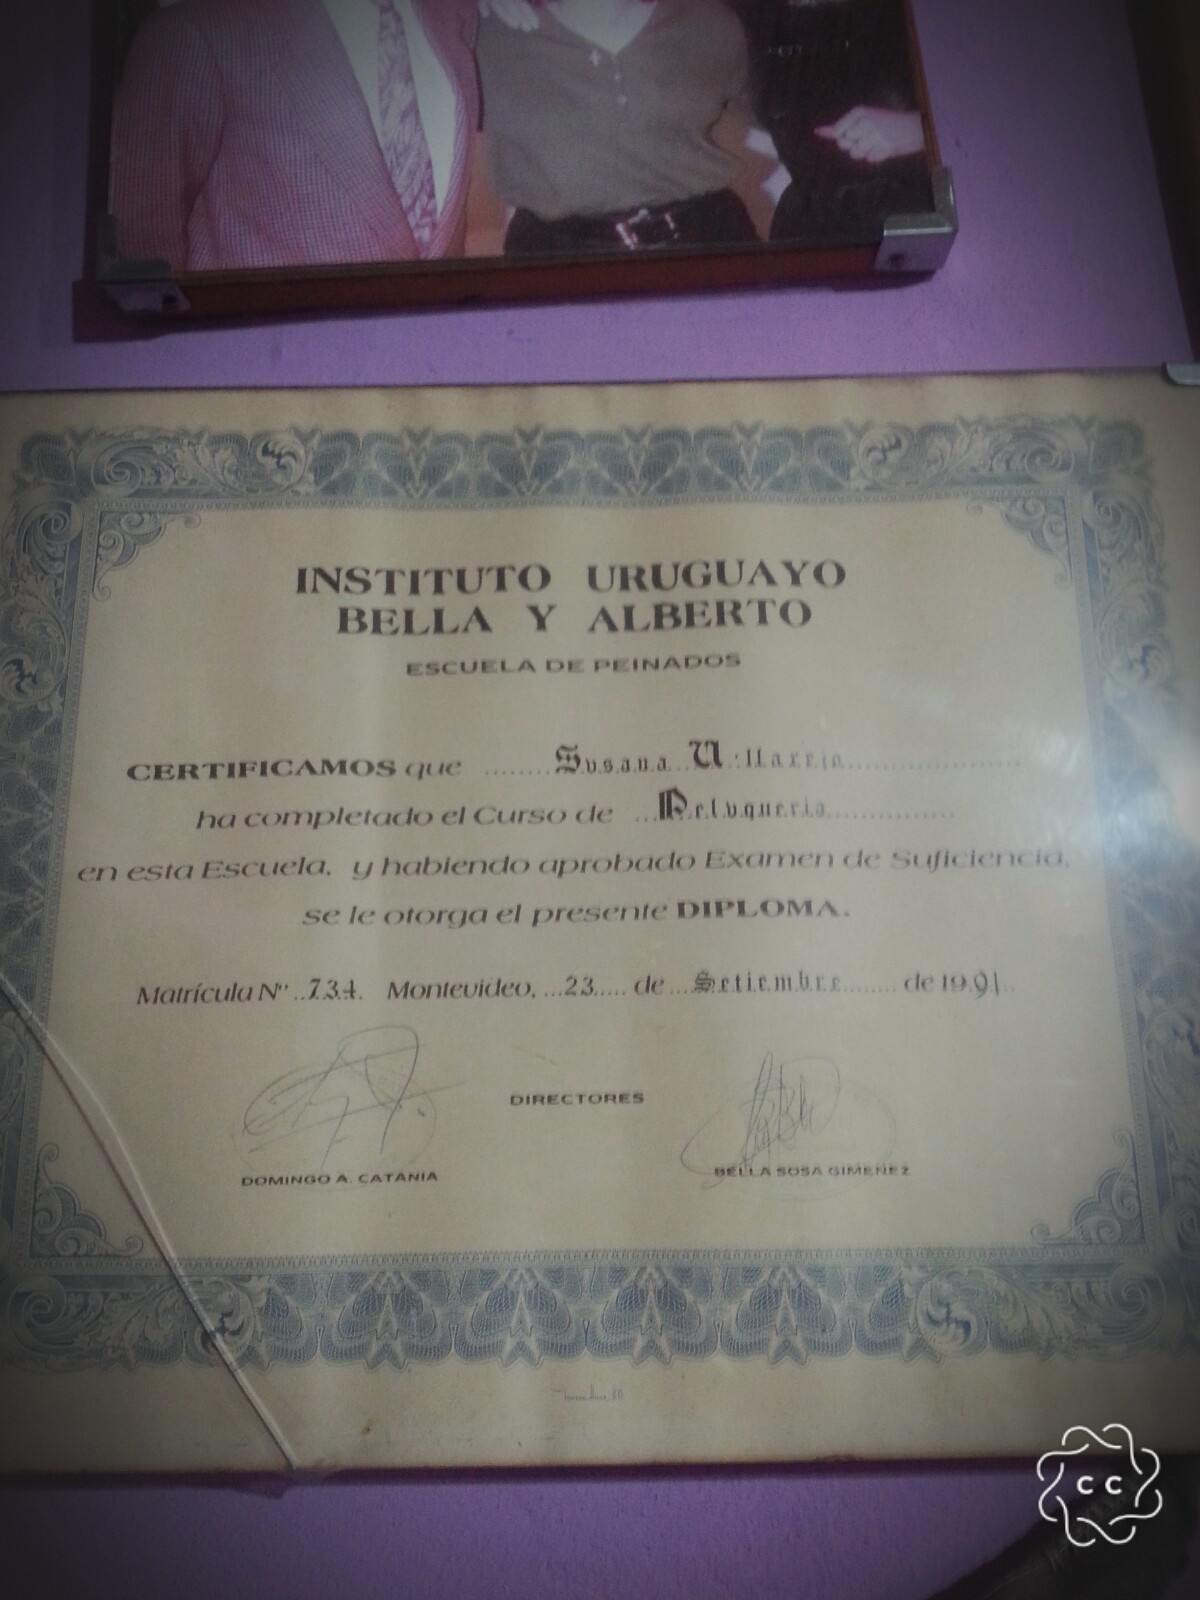 INSTITUTO URUGUAYO
BELLA Y ALBERTO
ESCUELA DE PEINADOS
CERTIFICAMOS que Susana Villarejo
ha completado el Curso de Peluqueria
en esta Escuela, y habiendo aprobado Examen de Suficiencia,
se le otorga el presente DIPLOMA.
Matrícula Nº 734. Montevideo, 23 de Setiembre de 1991
DIRECTORES
DOMINGO A. CATANIA BELLA SOSA GIMENEZ
cc